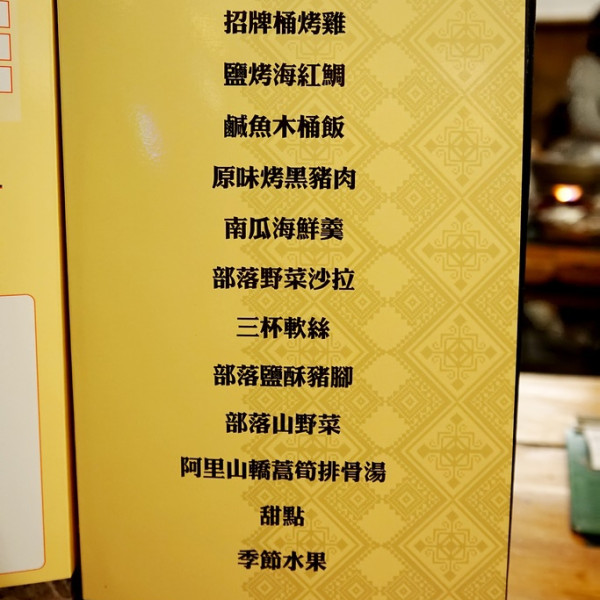 招牌桶烤雞
鹽烤海紅鯛
鹹魚木桶飯
原味烤黑豬肉
南瓜海鮮羹
部落野菜沙拉
三杯軟絲
部落鹽酥豬腳
部落山野菜
阿里山轎蒿筍排骨湯
甜點
季節水果